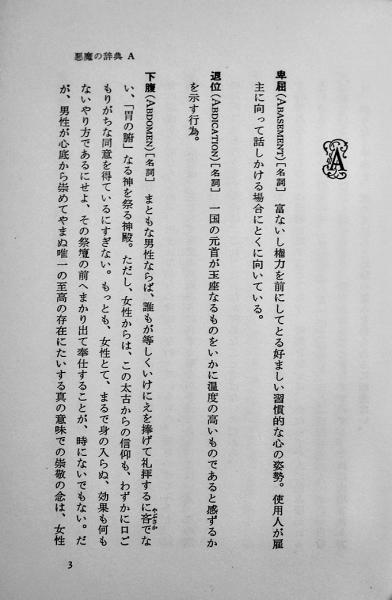 悪魔の辞典 A
A
卑屈(ABASEMENT)[名詞] 富ないし権力を前にしてとる好ましい習慣的な心の姿勢。使用人が雇
主に向って話しかける場合にとくに向いている。
退位(ABDICATION)[名詞] 一国の元首が玉座なるものをいかに温度の高いものであると感ずるか
を示す行為。
下腹(ABDOMEN)[名詞] まともな男性ならば、誰もが等しくいけにえを捧げて礼拝するに吝でな
い、「胃の腑」なる神を祭る神殿。ただし、女性からは、この太古からの信仰も、わずかに口ご
もりがちな同意を得ているにすぎない。もっとも、女性とて、まるで身の入らぬ、効果も何も
ないやり方であるにせよ、その祭壇の前へまかり出て奉仕することが、時にないでもない。だ
が、男性が心底から崇めてやまぬ唯一の至高の存在にたいする真の意味での崇敬の念は、女性
3